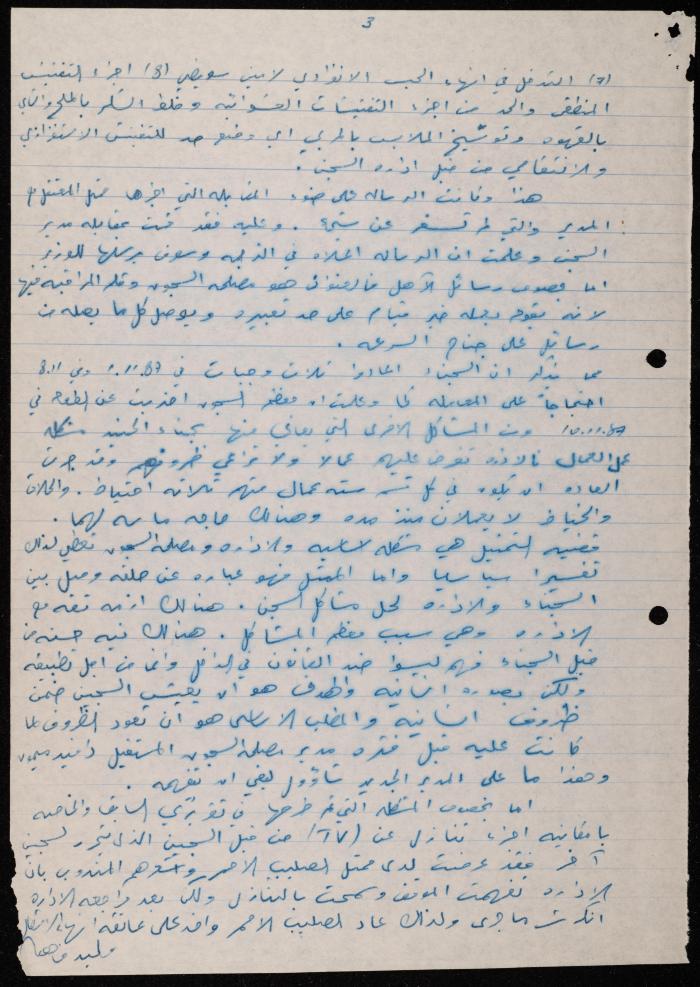 3
(7) التدخل في انهاء الحبس الانفرادي لامين سويضي (8) اجراء التفتيش
المنطقي والحد من اجراء التفتيشات العشوائية وخلط السكر بالملح والشاي
بالقهوه وتوسيخ الملابس بالمربى اي وضع حد للتفتيش الاستفزازي
والانتقامي من قبل اداره السجن .
هذا وكانت الرساله على ضوء المقابله التي اجراها ممثل المعتقل مع
المدير والتي لم تسفر عن شيء . وعليه فقد قمت بمقابله مدير
السجن وعلمت ان الرساله اعلاه في الترجمه وسوف يرسلها للوزير
اما بخصوص رسائل الاهل فالعنوان هو مصلحه السجون وقلم المراقبه فيها
لانه يقوم بعمله خير قيام على حد تعبيره ويوصل كل ما يصله من
رسائل على جناح السرعه .
مما يذكر ان السجناء اعادوا ثلاث وجبات في 1.11.87 وفي 8.11
احتجاجا على المعامله كما وعلمت ان معظم السجون اضربت عن الطعام في
10.11.87 ومن المشاكل الاخرى التي يعاني منها سجناء الجنيد مشكله
عمل العمال فالاداره تفرض عليهم عمالا ولا تراعي ظروفهم وقد جرت
العاده ان يكون في كل قسم سته عمال منهم ثلاثه احتياط . والحلاق
والخياط لا يعملان منذ مده وهنالك حاجه ماسه لهما .
قضيه التمثيل هي مشكله اساسيه والاداره ومصلحه السجون تعطي لذلك
تفسيرا سياسيا واما الممثل فهو عباره عن حلقه وصل بين
السجناء والاداره لحل مشاكل السجن . هنالك ازمه ثقه مع
الاداره وهي سبب معظم المشاكل . هنالك نيه حسنه من
قبل السجناء فهم ليسوا ضد القانون في الداخل وانما من اجل تطبيقه
ولكن بصوره انسانيه والهدف هو ان يعيش السجين ضمن
ظروف انسانيه والمطلب الاساسي هو ان تعود الظروف لما
كانت عليه قبل فتره مدير مصلحه السجون المستقيل دافيد ميمون
وهذا ما على المدير الجديد شاؤول ليفي ان يتفهمه .
اما بخصوص المشكله التي تم طرحها في تقريري السابق والخاصه
بامكانيه اجراء تنازل عن (TV) من قبل السجين الذي يتحرر لسجين
آخر فقد عرضت لدى ممثل الصليب الاحمر واشعرهم المندوب بان
الاداره تفهمت الموقف وسمحت بالتنازل ولكن بعد مراجعه الاداره
انكرت ما جرى ولذلك عاد الصليب الاحمر واخذ على عاتقه انهاء المشكله
وليد